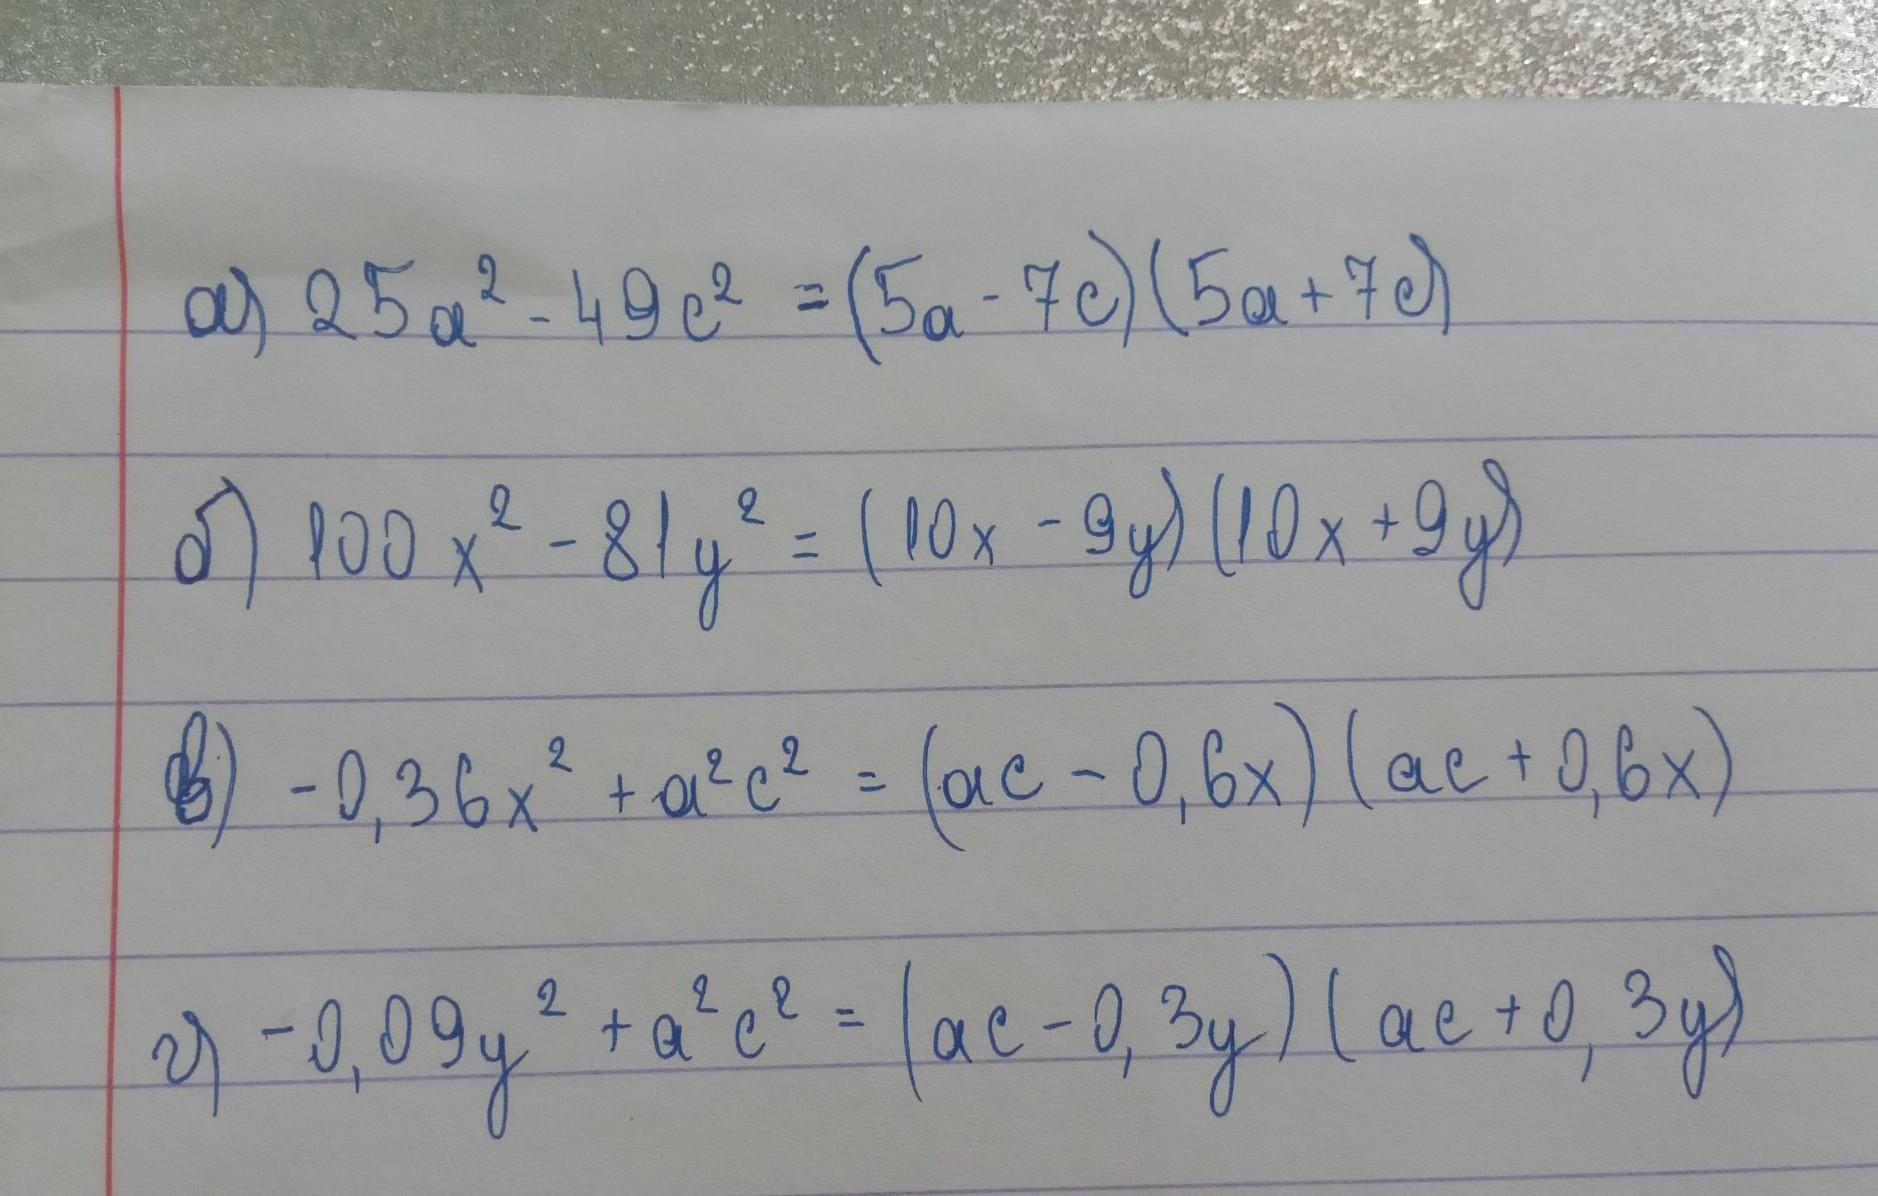 а) 25a² - 49c² = (5a - 7c)(5a + 7c)
б) 100x² - 81y² = (10x - 9y)(10x + 9y)
в) -0,36x² + a²c² = (ac - 0,6x)(ac + 0,6x)
г) -0,09y² + a²c² = (ac - 0,3y)(ac + 0,3y)